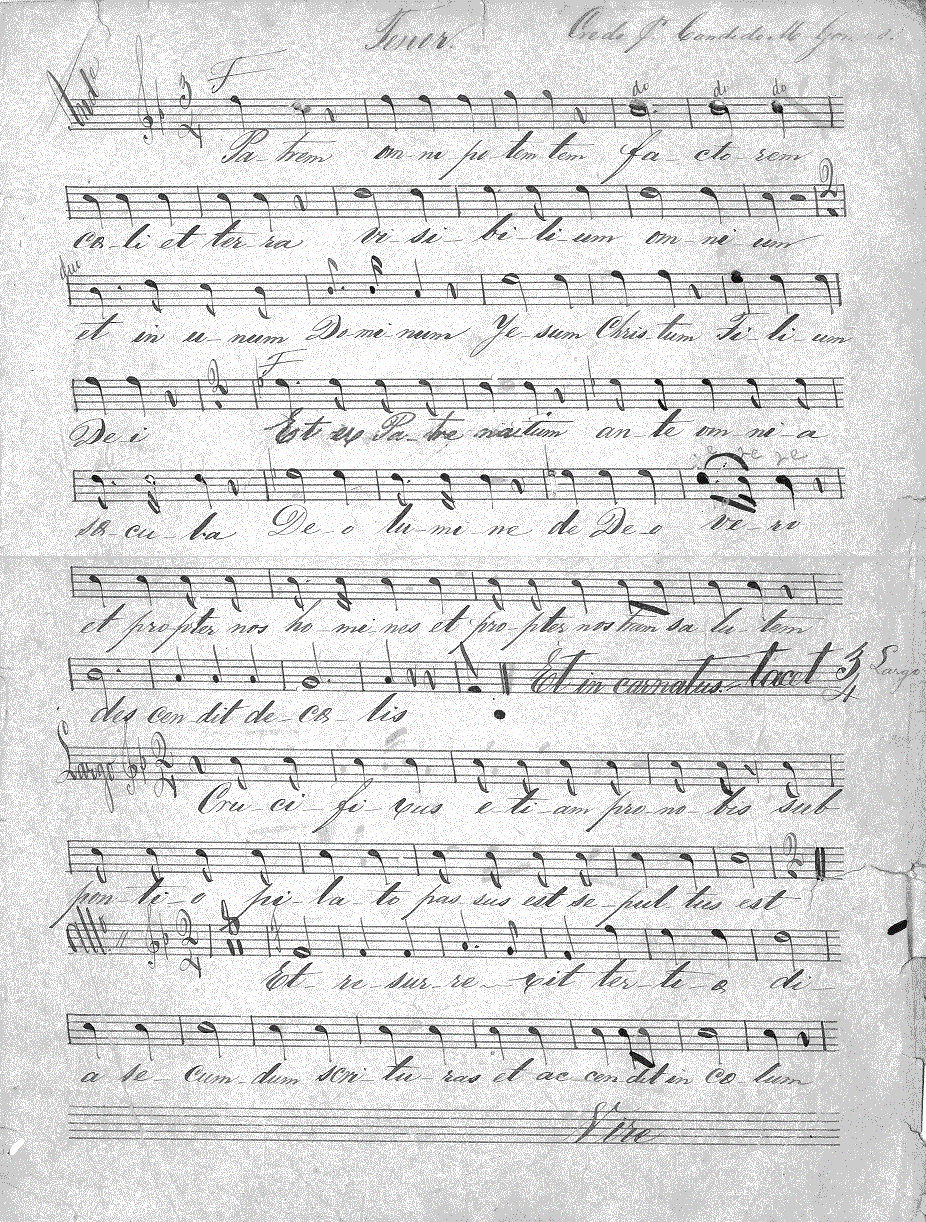 Tenor. Credo Pe Candido M
Ande 3 4 F
do do do
Pa-trem om-ni po-tem tem fa-cto-rem
2
cœ-li et ter-ra vi-si-bi-li-um om-ni um
duo
et in u-num Do-mi-num Ye-sum Chris-tum Fi-li-um
2 F
De i Est ex Pa-tre natum an-te om-ni-a
sœ-cu-la De-o lu-mi-ne de De-o ve-ro
et propter nos ho-mi-nes et pro-pter nos tram sa lu-tem
Et in carnatus. tacet 3 4 Largo
des cen dit de-cœ-lis
Largo 2 4
Cru-ci-fi-xus e-ti-am pro-no-bis sub
2
pon-ti-o pi-la-to pas sus est se-pul tus est
Allo 2 4
Et-re-sur-re-xit ter-ti-a di-
a se-cun-dum scri-tu-ras et ac-cen dit in cœ lum
Vire